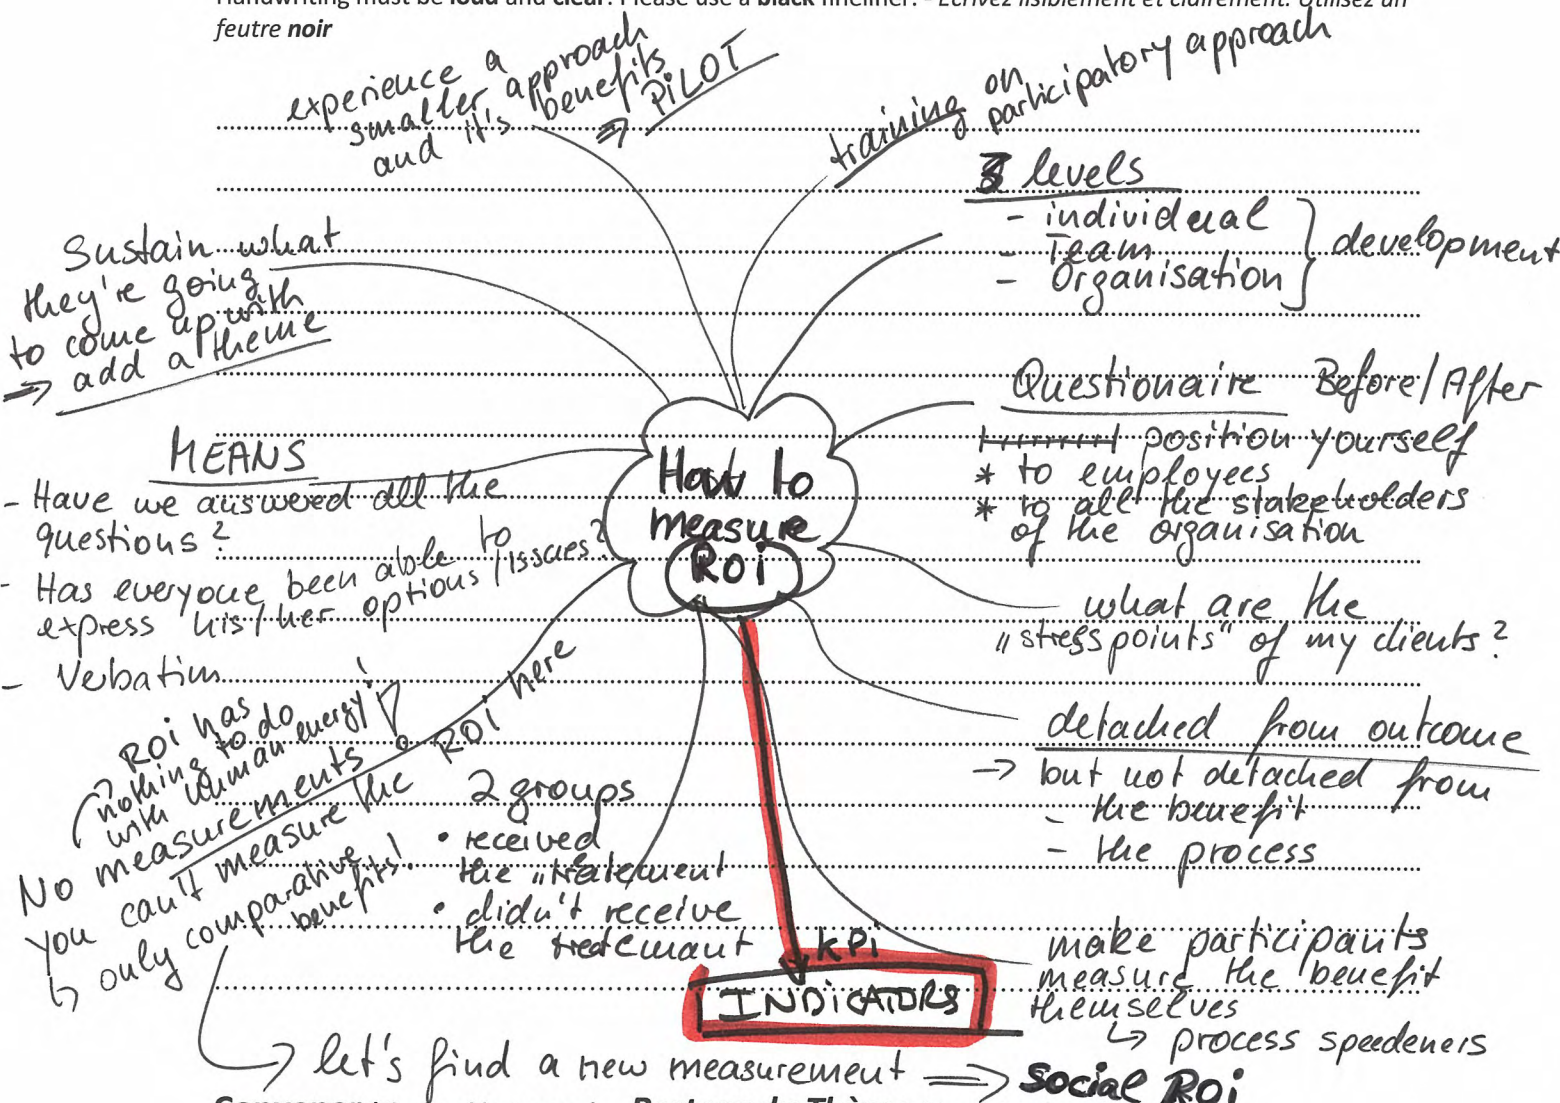 Handwriting must be loud and clear. Please use a black fineliner. - Écrivez lisiblement et clairement. Utilisez un
feutre noir
experience a
smaller approach
and it's benefits
⇒ PILOT
training on
participatory approach
3 levels
- individual
- Team
- Organisation
development
Sustain what
they're going
to come up with
⇒ add a theme
Questionaire Before/After
position yourself
* to employees
* to all the stakeholders
of the organisation
MEANS
- Have we answered all the
questions?
- Has everyone been able to
express his/her options/issues?
- Verbatim
How to
measure
ROi
what are the
"stress points" of my clients?
detached from outcome
→ but not detached from
- the benefit
- the process
ROi has
nothing to do
with human energy!
No measurements!
you can't measure the ROI here
↳ only comparative
benefits!
2 groups
• received
the "tratement
• didn't receive
the tratemant
KPi
INDICATORS
make participants
measure the benefit
themselves
↳ process speedeners
→ let's find a new measurement ⇒ social ROi